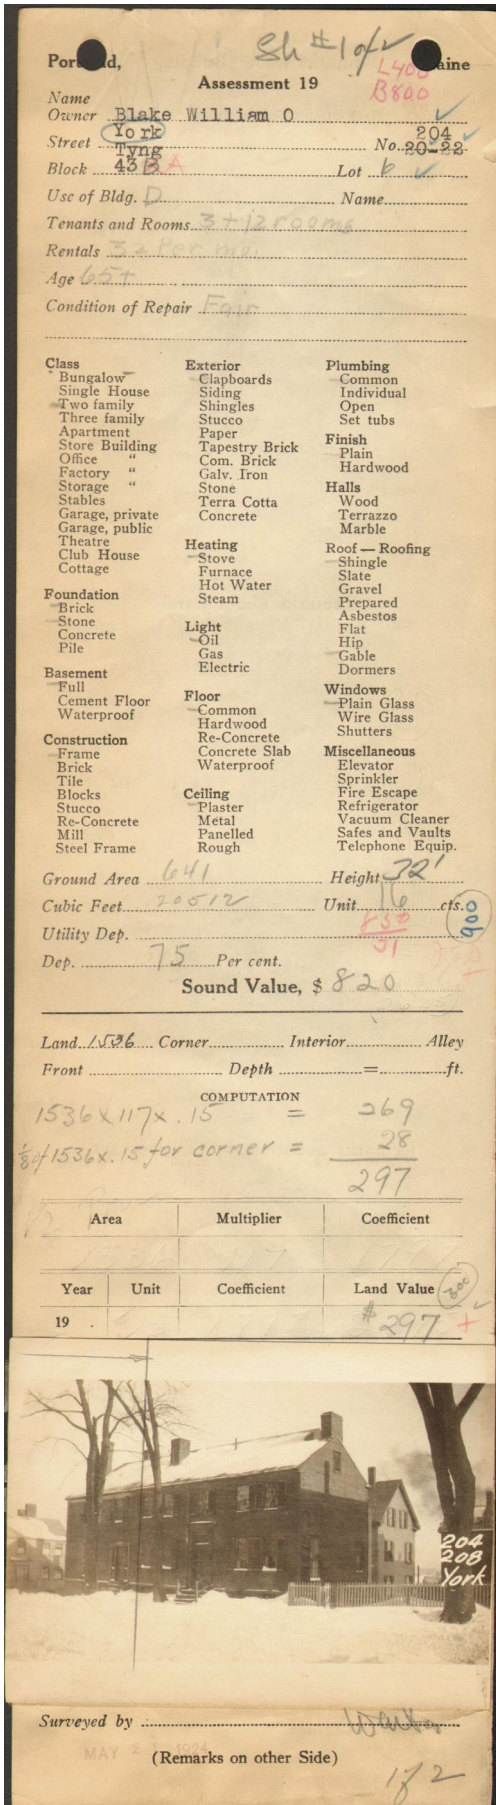 Sh #1 of 2
Portland, Maine
L400
B800
Assessment 19
Name
Owner Blake William O
York 204
Street Tyng No. 20-22
Block 43 A Lot 6
Use of Bldg. D Name
Tenants and Rooms 3+12 rooms
Rentals 32 Per mo.
Age 65+
Condition of Repair Fair
Class
Bungalow
Single House
Two family
Three family
Apartment
Store Building
Office "
Factory "
Storage "
Stables
Garage, private
Garage, public
Theatre
Club House
Cottage
Foundation
Brick
Stone
Concrete
Pile
Basement
Full
Cement Floor
Waterproof
Construction
Frame
Brick
Tile
Blocks
Stucco
Re-Concrete
Mill
Steel Frame
Exterior
Clapboards
Siding
Shingles
Stucco
Paper
Tapestry Brick
Com. Brick
Galv. Iron
Stone
Terra Cotta
Concrete
Heating
Stove
Furnace
Hot Water
Steam
Light
Oil
Gas
Electric
Floor
Common
Hardwood
Re-Concrete
Concrete Slab
Waterproof
Ceiling
Plaster
Metal
Panelled
Rough
Plumbing
Common
Individual
Open
Set tubs
Finish
Plain
Hardwood
Halls
Wood
Terrazzo
Marble
Roof — Roofing
Shingle
Slate
Gravel
Prepared
Asbestos
Flat
Hip
Gable
Dormers
Windows
Plain Glass
Wire Glass
Shutters
Miscellaneous
Elevator
Sprinkler
Fire Escape
Refrigerator
Vacuum Cleaner
Safes and Vaults
Telephone Equip.
Ground Area 641 Height 32'
Cubic Feet 20512 Unit 16 cts.
900
850
51
Utility Dep.
Dep. 75 Per cent.
Sound Value, $ 820
Land 1536 Corner Interior Alley
Front Depth = ft.
COMPUTATION
1536 x 117 x .15 = 269
1/8 of 1536 x .15 for corner = 28
297
Area Multiplier Coefficient
Year Unit Coefficient Land Value 300
19 . $ 297 +
204
208
York
Surveyed by
MAY 2 1924
(Remarks on other Side)
1 of 2